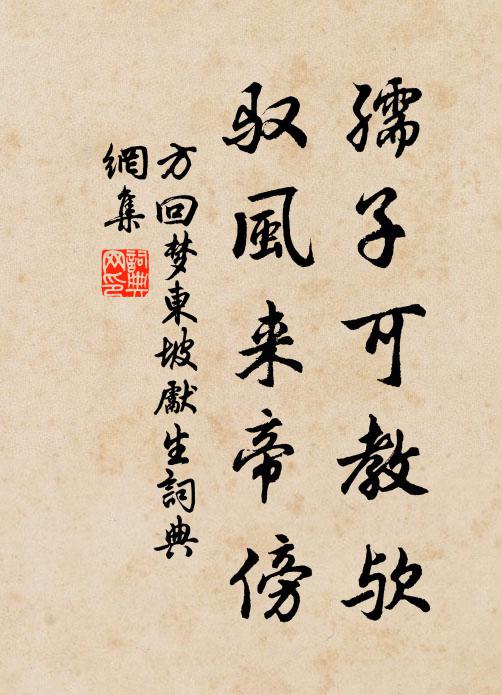 孺子可教欤
驭風来帝傍
方回梦東坡獻生詞典
網集
詞典
网印